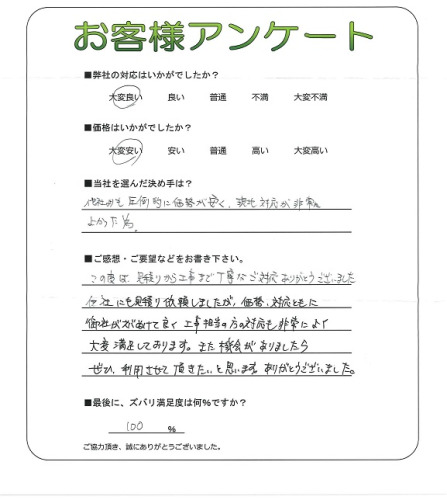 お客様アンケート
■弊社の対応はいかがでしたか？
大変良い 良い 普通 不満 大変不満
■価格はいかがでしたか？
大変安い 安い 普通 高い 大変高い
■当社を選んだ決め手は？
他社よりも圧倒的に価格が安く、対応が非常に
よかった為。
■ご感想・ご要望などをお書き下さい。
この度は、見積りから工事まで丁寧なご対応ありがとうございました
他社にも見積り依頼しましたが、価格、対応ともに
御社がずばぬけて良く工事担当の方の対応も非常によく
大変満足しております。また機会がありましたら
ぜひ、利用させて頂きたいと思います。ありがとうございました。
■最後に、ズバリ満足度は何％ですか？
100 ％
ご協力頂き、誠にありがとうございました。